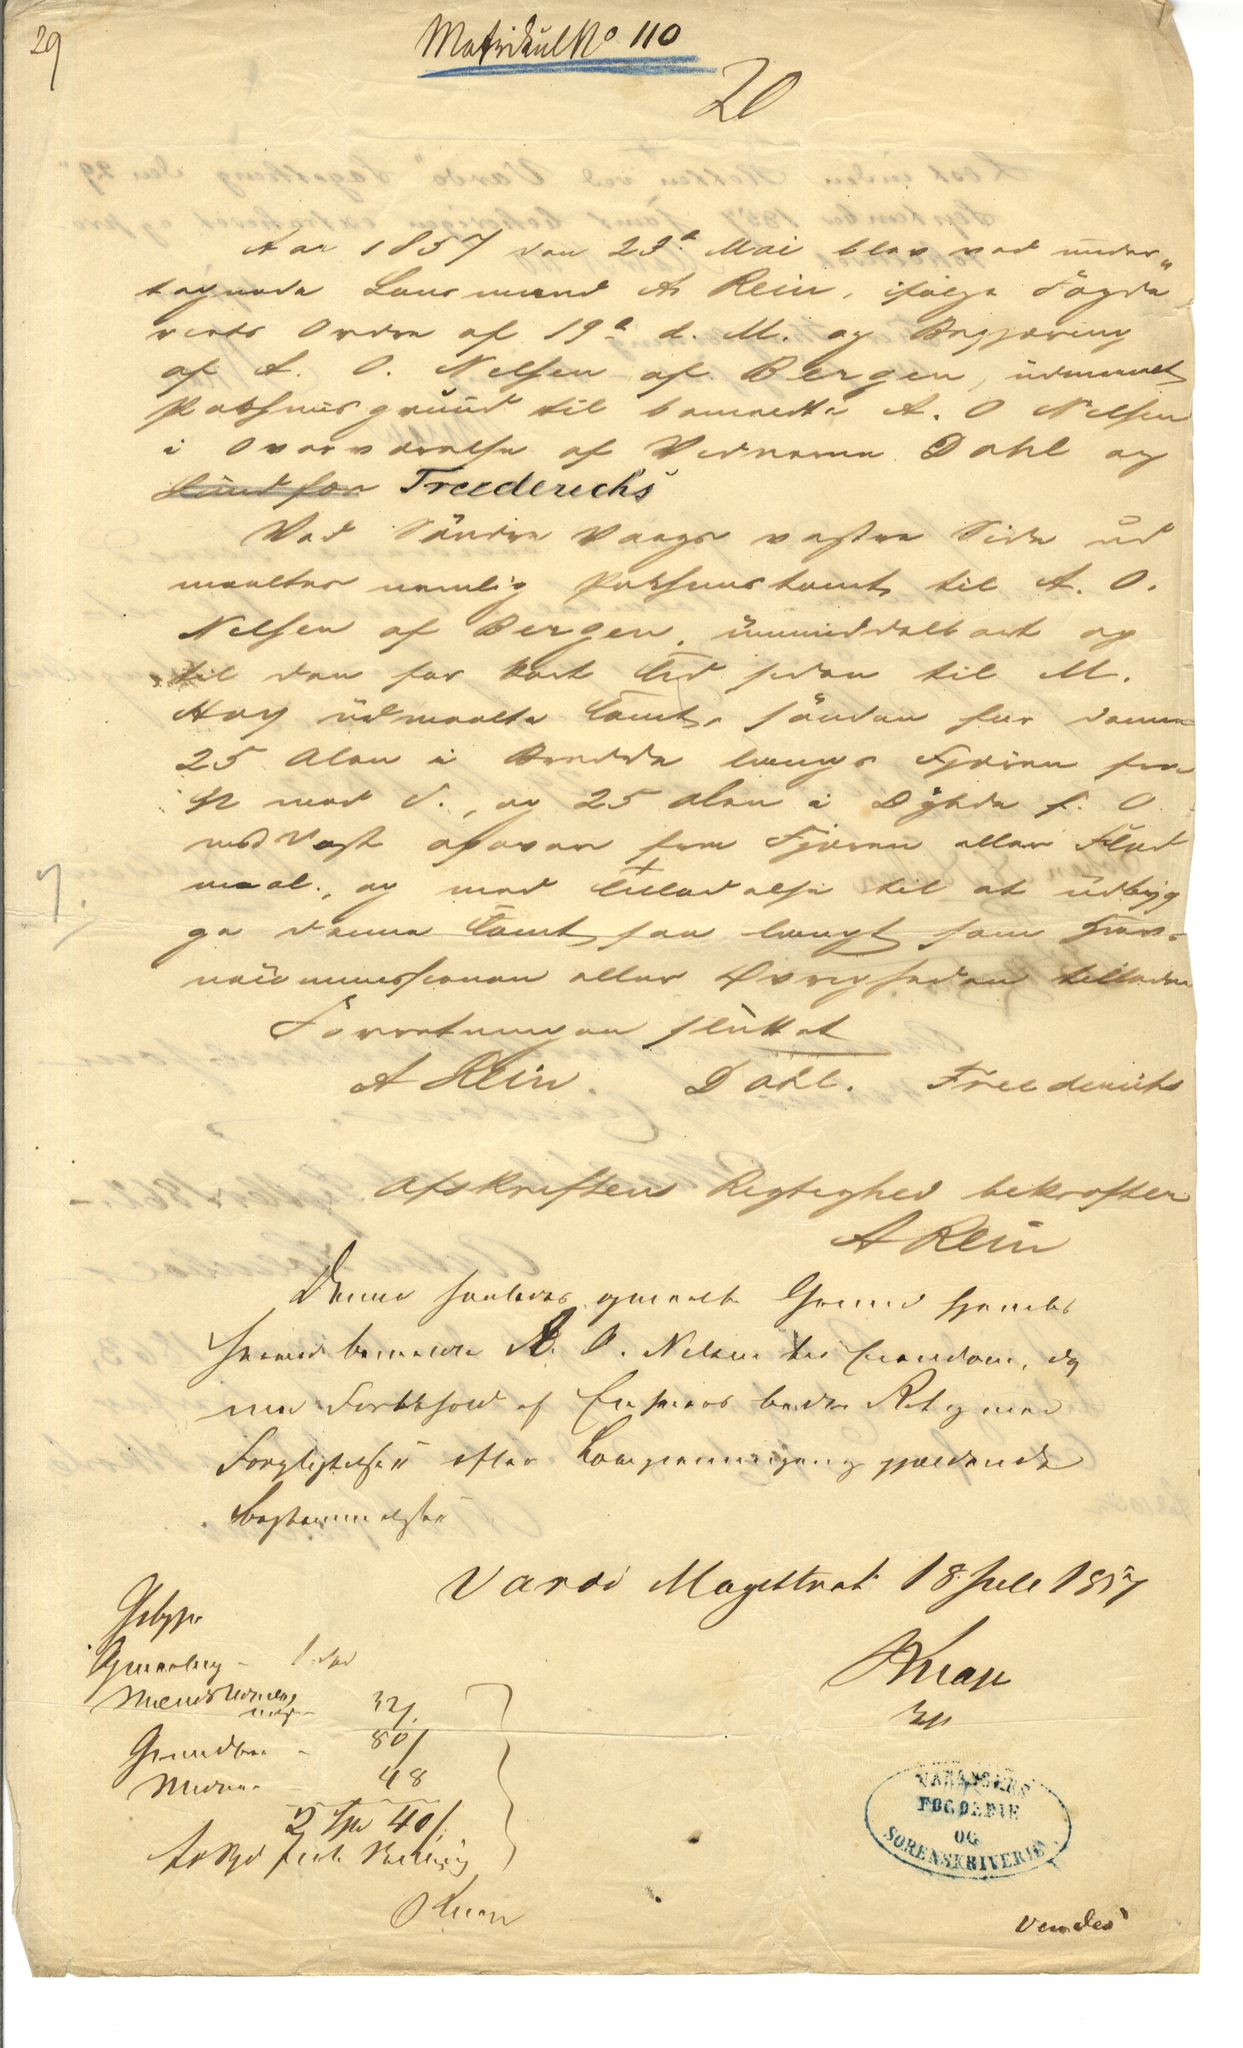 29
Matrikul No 110
20
Aar 1857 den 23de Mai blev ved under„
tegnede Lensmand A Rein, ifølge Fogde
riets Ordre af 19de d. M. og Begjæring
af A. O. Nelsen af Bergen, udmaalt
Pakhuusgrund til bemeldte A. O Nelsen
i Overværelse af Vidnerne Dahl og
Freederichs
Ved Søndre Vaags vestre Side ud
maaltes nemlig Pakhuustomt til A. O.
Nelsen af Bergen, umiddelbart og
til den for kort Tid siden til M.
Hoy udmaalte Tomt, sønden for denne
25 Alen i Bredde langs Fjæren fra
N mod S., og 25 Alen i Dybde f. O
mod Vest ovover fra Fjæren eller Flod
maal., og med Tilladelse til at udbyg
ge denne Tomt saa langt som Hav-
necommissionen eller Øvrigheden tillader
Forretningen sluttet
A Rein. Dahl. Freederichs
Afskriftens Rigtighed bekræfter
A Rein
Denne saaledes opmaalte Grund skjænkes
herved bemeldte A. O. Nelsen til Eiendom, og
med Forbehold af Enhvers bedre Ret og med
Forpligtelser efter Lovgivningens gjældende
Bestemmelser
Vardø Magistrat 18 Juli 1857
Knap
Gebyr
Opmaaling - 1 spd
32/.
Grundbrev - 80/
Vidner - 48
2 Spd 40/.
Knap
VARANGERS
FOGDERIE
OG
SORENSKRIVERIE
Vendes